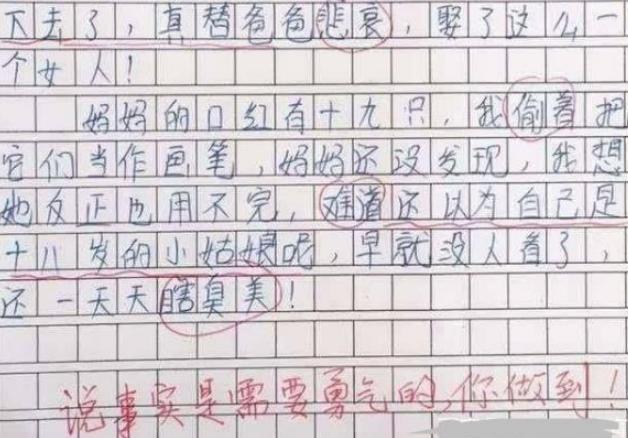 下去了，真替爸爸悲哀，娶了这么一
个女人！
妈妈的口红有十九只，我偷着把
它们当作画笔，妈妈还没发现，我想
她反正也用不完，难道还以为自己是
十八岁的小姑娘呢，早就没人看了，
还一天天瞎臭美！
说事实是需要勇气的，你做到！